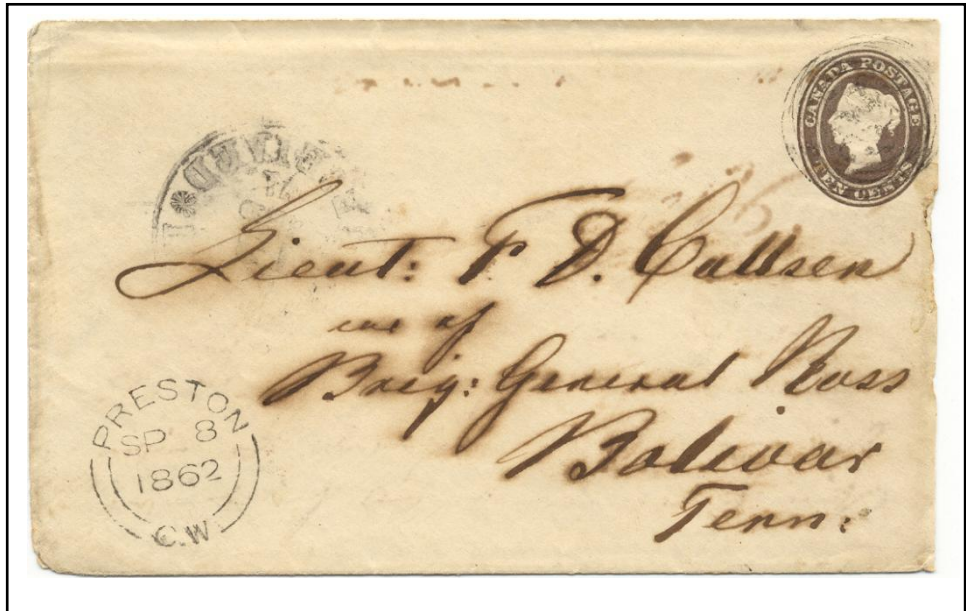 CANADA POSTAGE
TEN CENTS
Lieut: F. D. Callsen
care of
Brig: General Ross
Bolivar
Tenn:
PRESTON
SP 8
1862
C.W